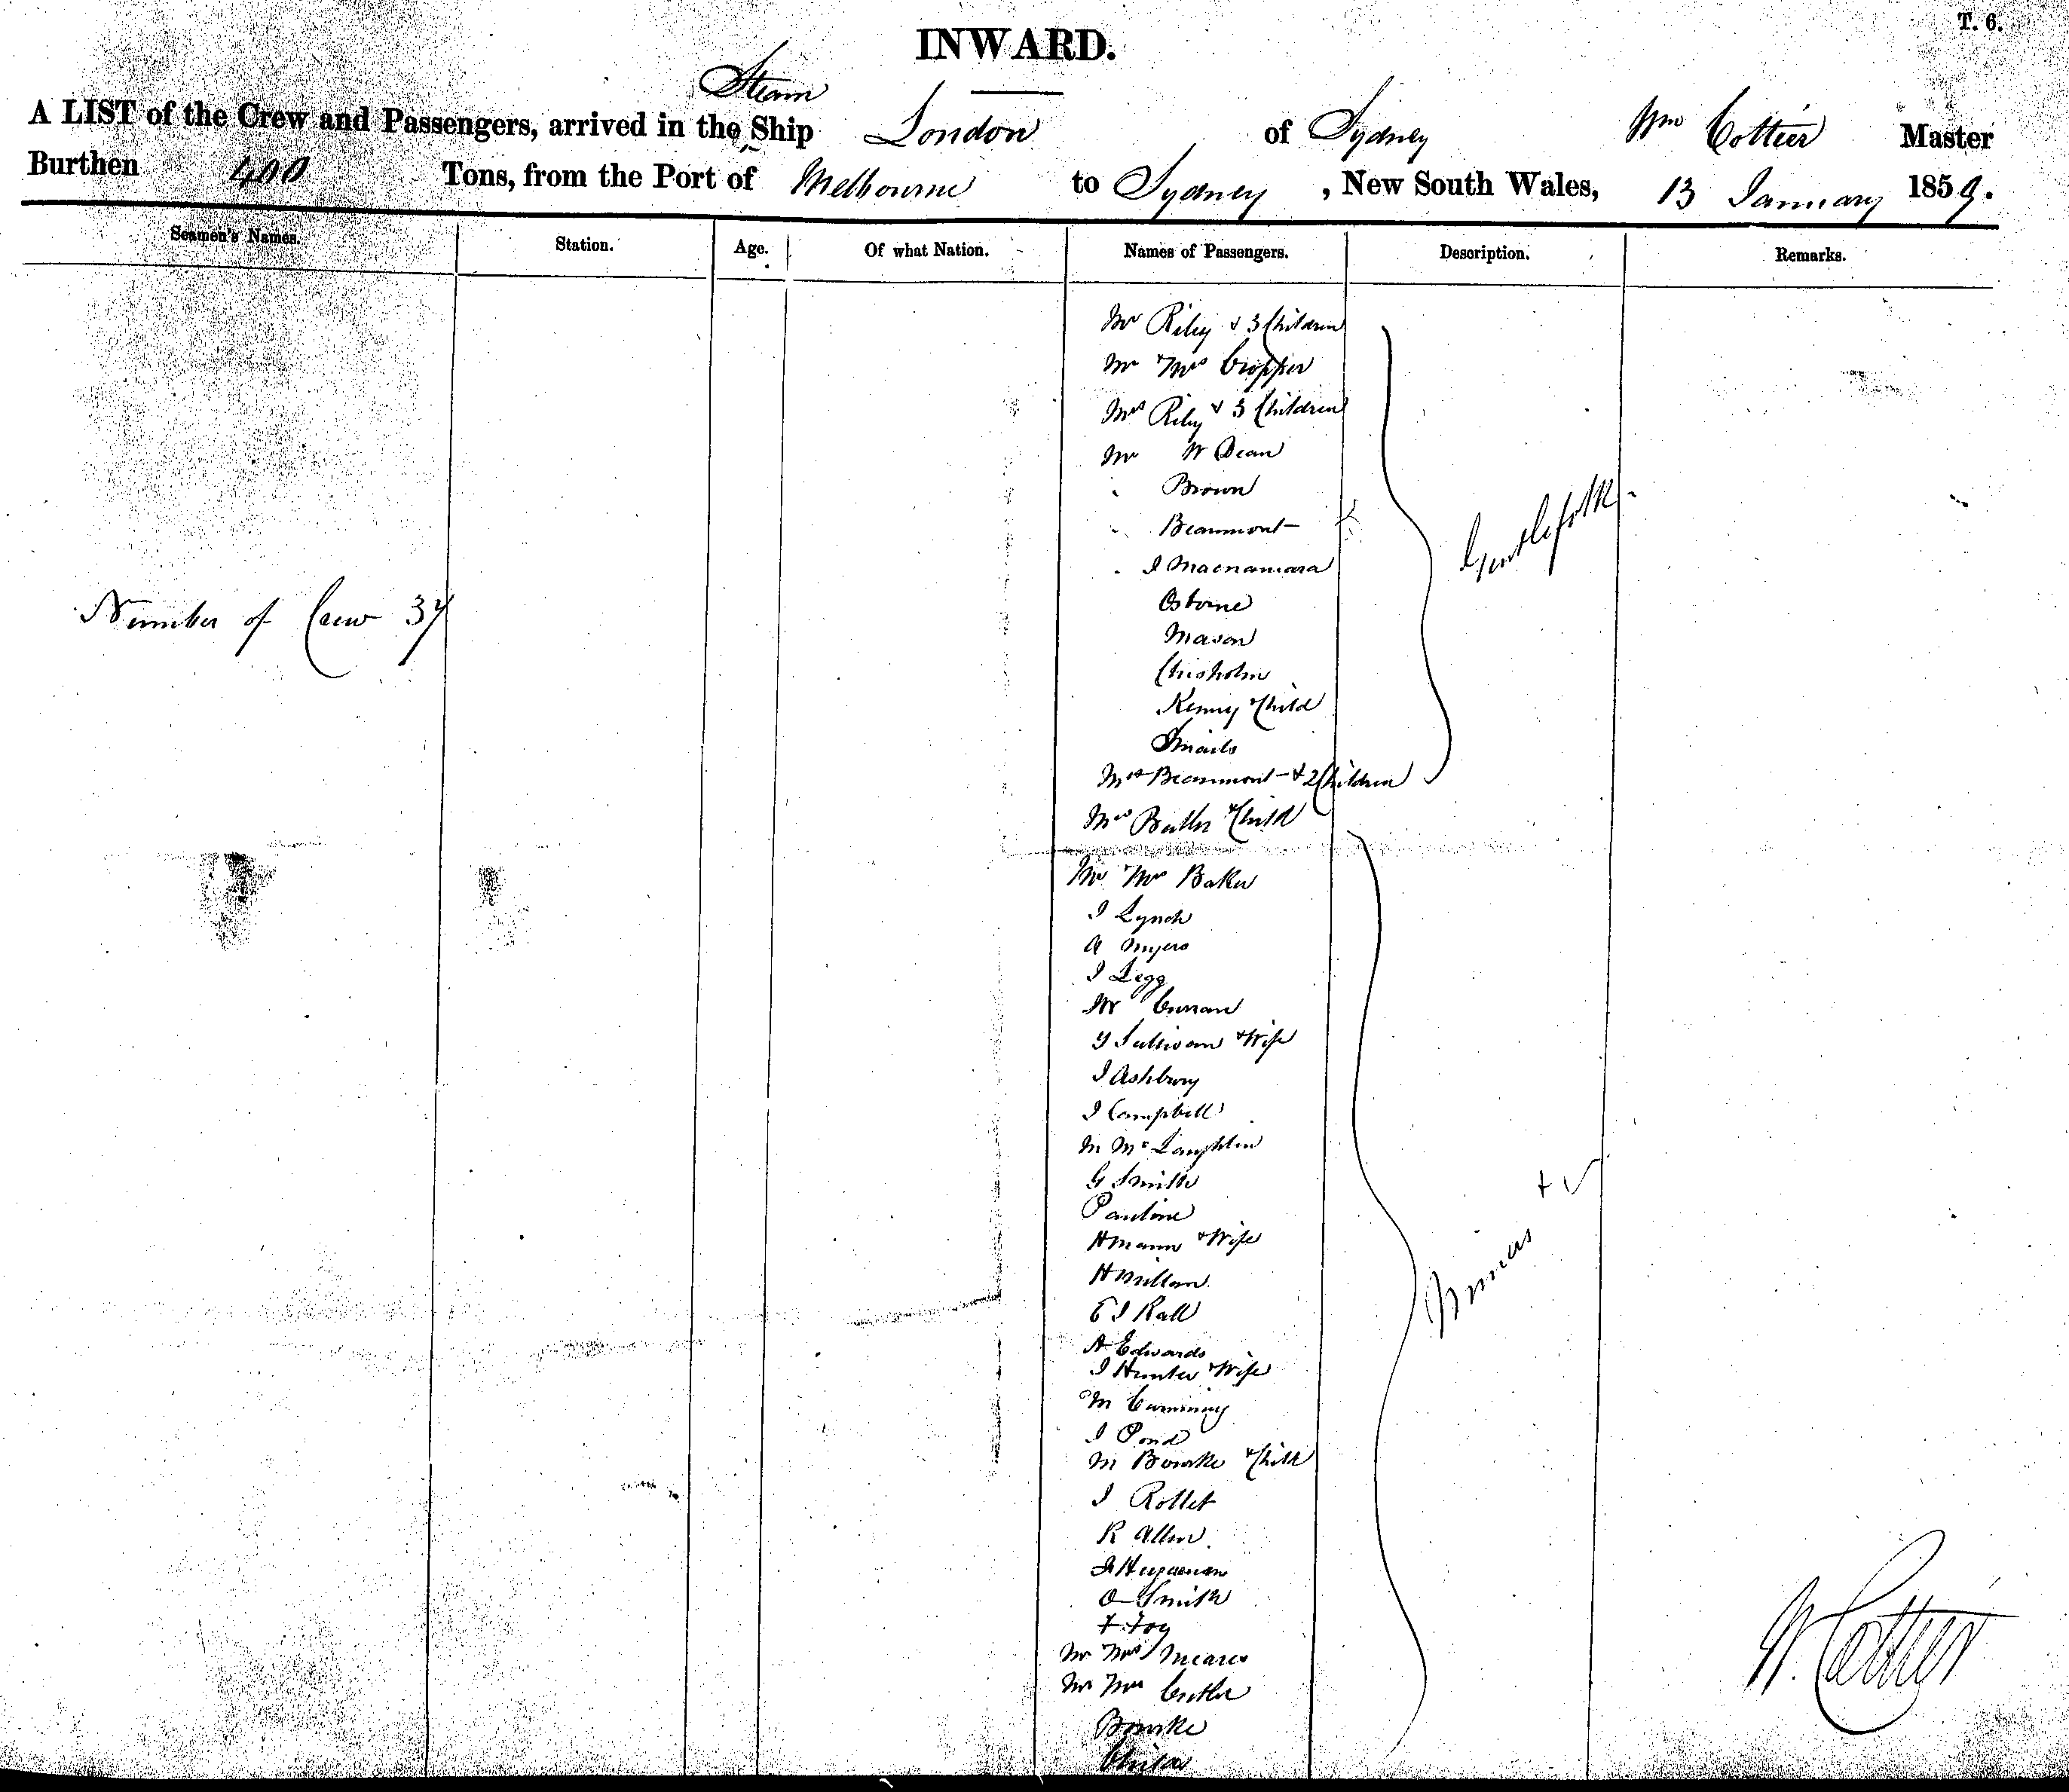 T. 6.
INWARD.
Steam
A LIST of the Crew and Passengers, arrived in the Ship London of Sydney Wm Cottier Master
Burthen 400 Tons, from the Port of Melbourne to Sydney, New South Wales, 13 January 1859.
Seamen's Names. Station. Age. Of what Nation. Names of Passengers. Description. Remarks.
Mr Riley & 3 Children
Mr & Mrs Cropper
Mrs Riley & 3 Children
Mr W Dean
" Brown
" Beaumont
Gentlefolk
" J Macnamara
Osborne
Number of Crew 37
Mason
Chisholm
Kenny & Child
Smails
Mrs Beaumont & 2 Children
Mrs Butler & Child
Mr & Mrs Baker
J Lynch
A Myers
J Legg
W Curran
Sullivan & Wife
J Ashbury
J Campbell
M McLaughlin
G Smith
Pauline
H Mann & Wife
H
Miners &
J Rall
A Edwards
J Hunter & Wife
M Cumming
J Pond
M Bourke & Child
J Rollet
R Allen
O Smith
F Foy
Mr & Mrs Meares
Mr & Mrs Cutler
Bourke
W. Cottier